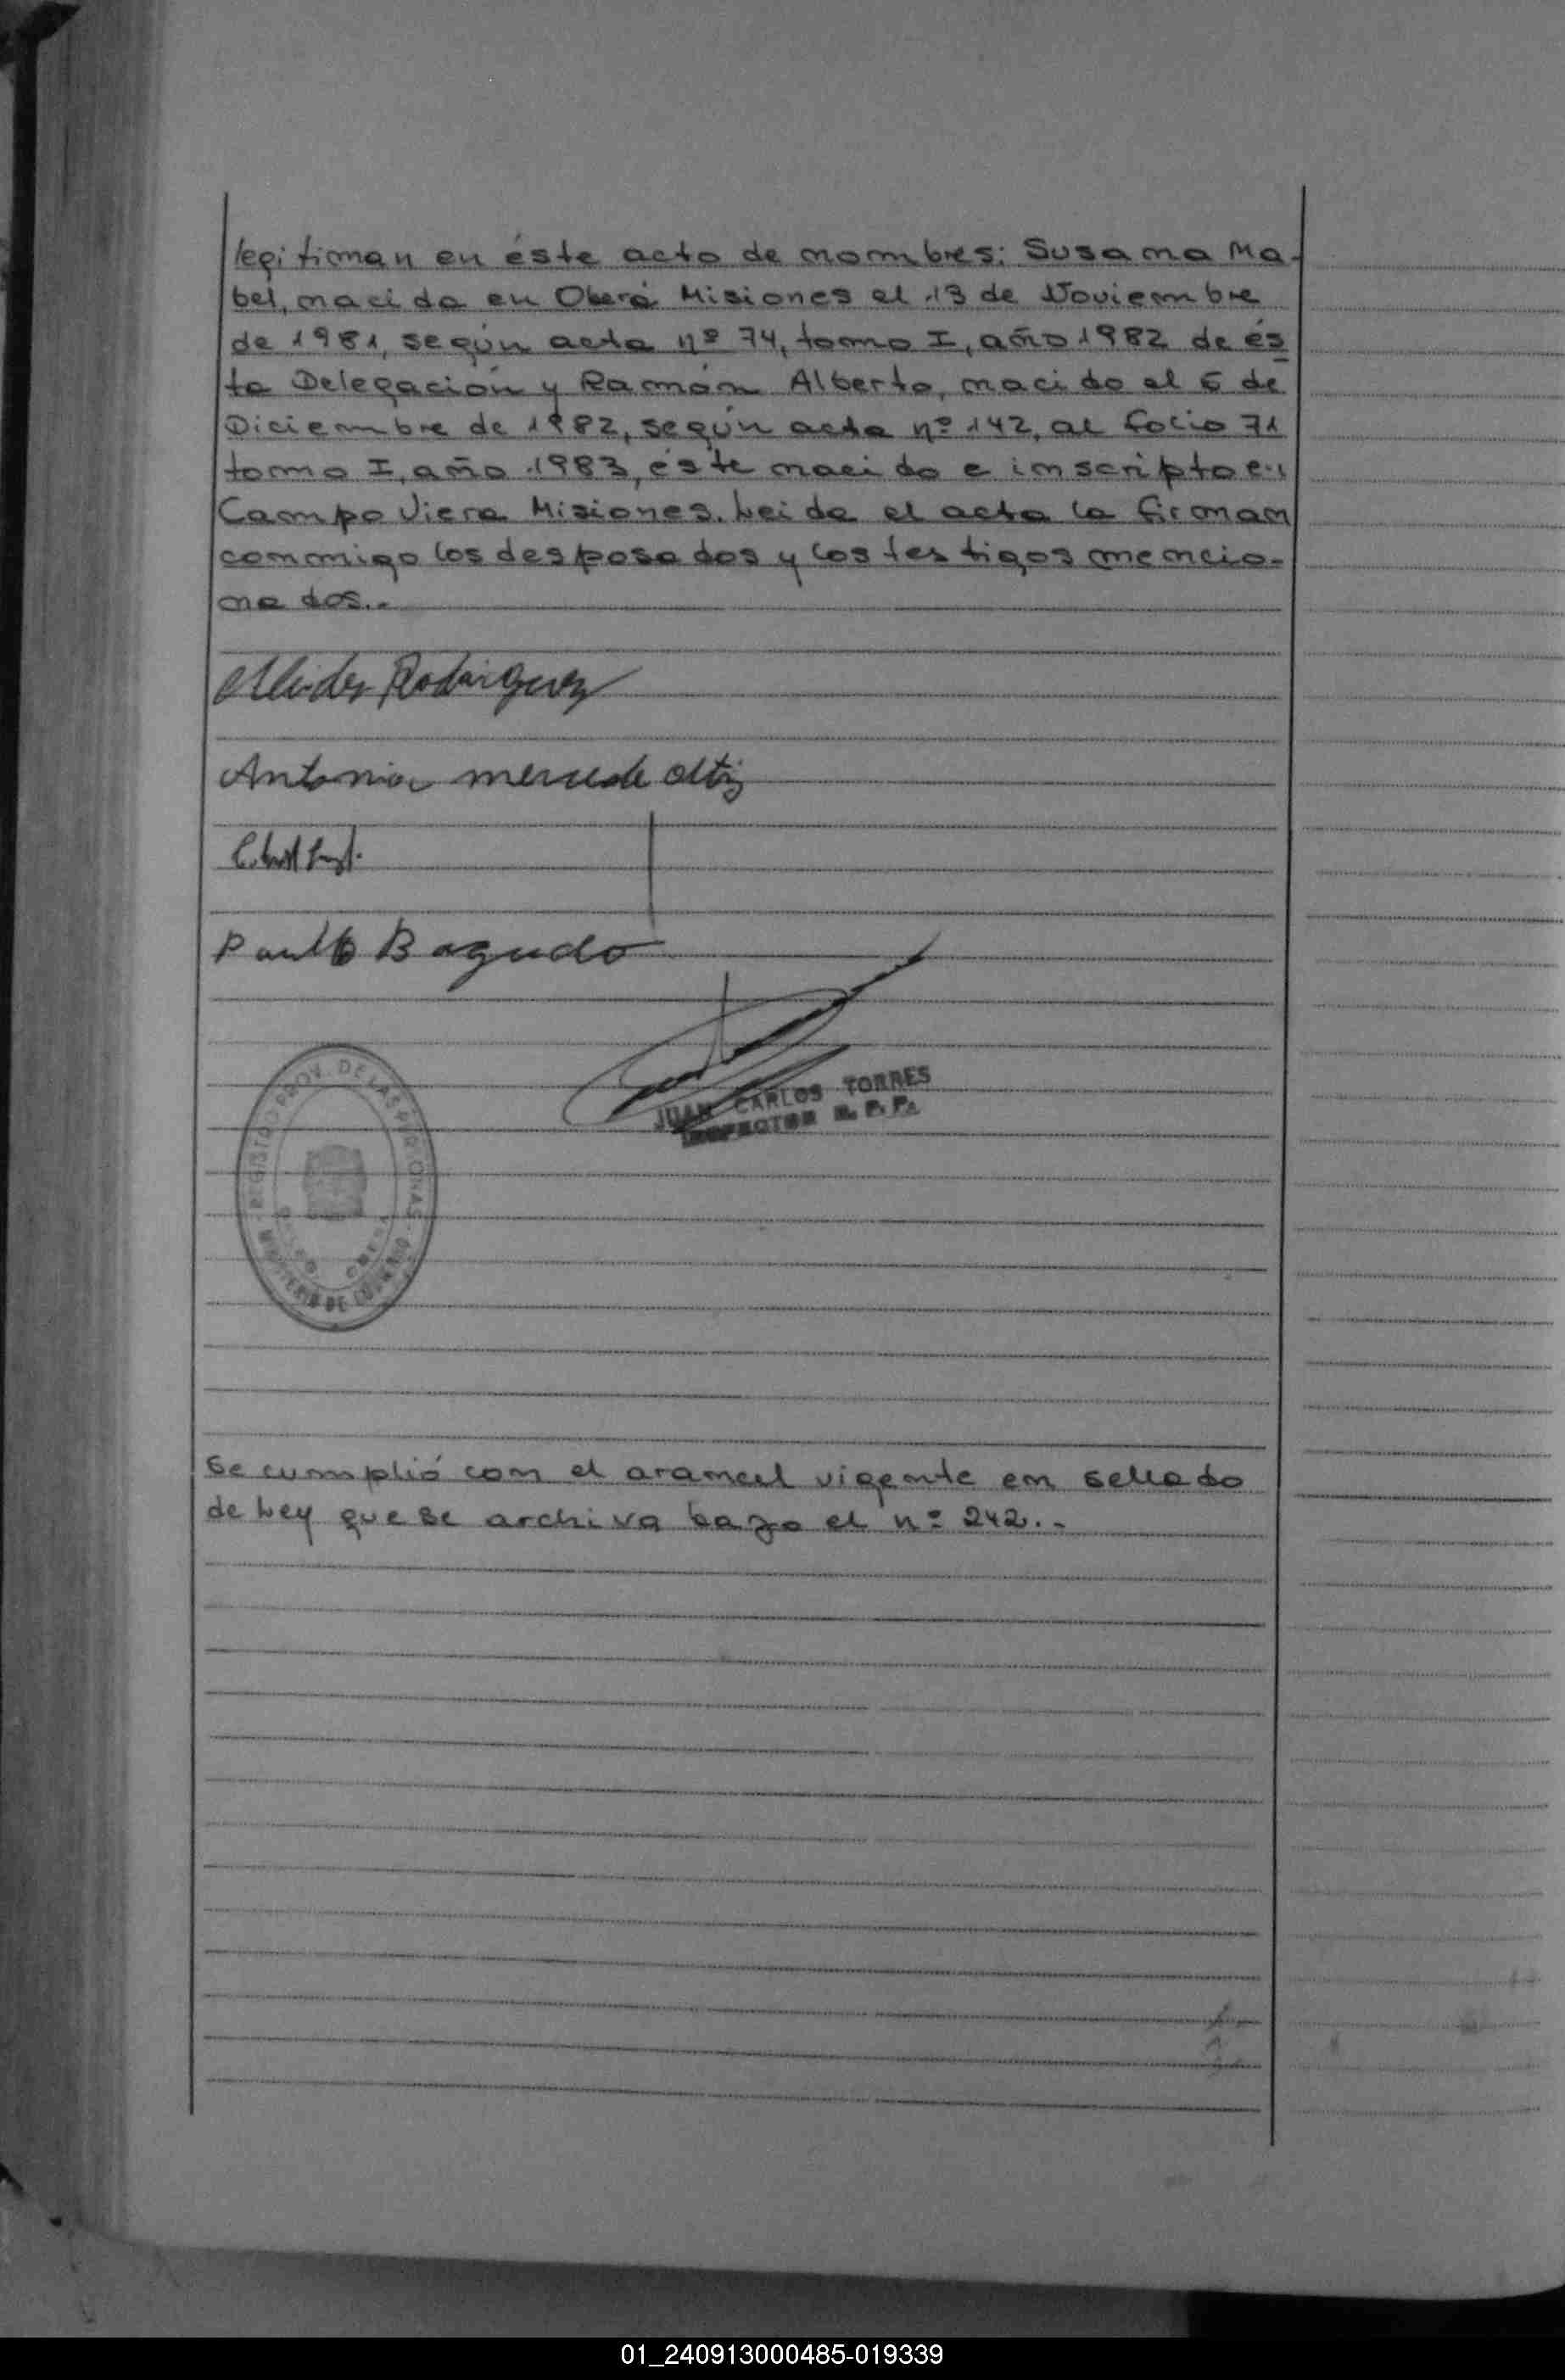 legitiman en éste acto de nombres: Susana Ma-
bel, nacida en Oberá Misiones el 13 de Noviembre
de 1981, según acta nº 74, tomo I, año 1982 de és
ta Delegación y Ramón Alberto, nacido el 6 de
Diciembre de 1982, según acta nº 142, al folio 71
tomo I, año 1983, éste nacido e inscripto en
Campo Viera Misiones. Leida el acta la firman
conmigo los desposados y los testigos mencio-
nados..-
Rodriguez
Antonia mercede
Bagudo
JUAN CARLOS TORRES
INSPECTOR R. P. P.
REGISTRO PROV. DE LAS PERSONAS
MINISTERIO DE GOBIERNO
Se cumplió con el arancel vigente en sellado
de Ley que se archiva bajo el nº 242..-
01_240913000485-019339